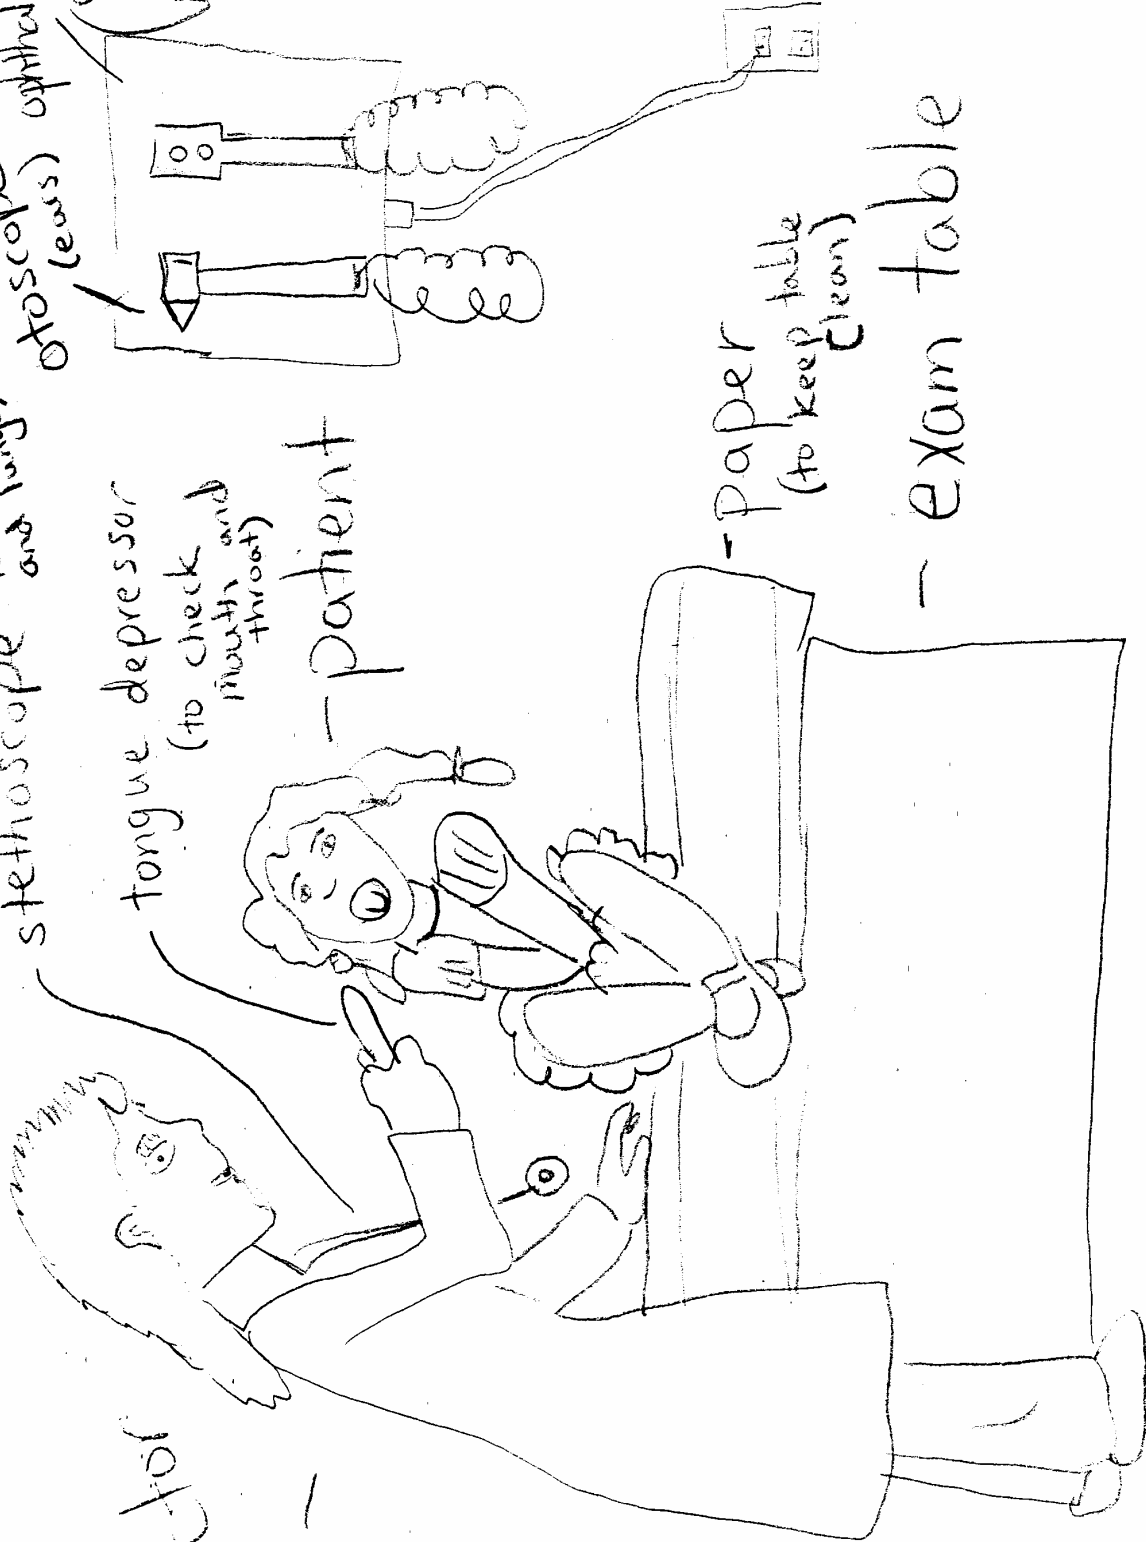 stethoscope
and lungs
otoscope
(ears)
tongue depressor
(to check
mouth and
throat)
- patient
- paper
(to keep table
clean)
- exam table